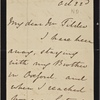 Oct 22d
My dear Mr Tilden
I have been
away, staying
with my Brother
in Oxford and
when I reached